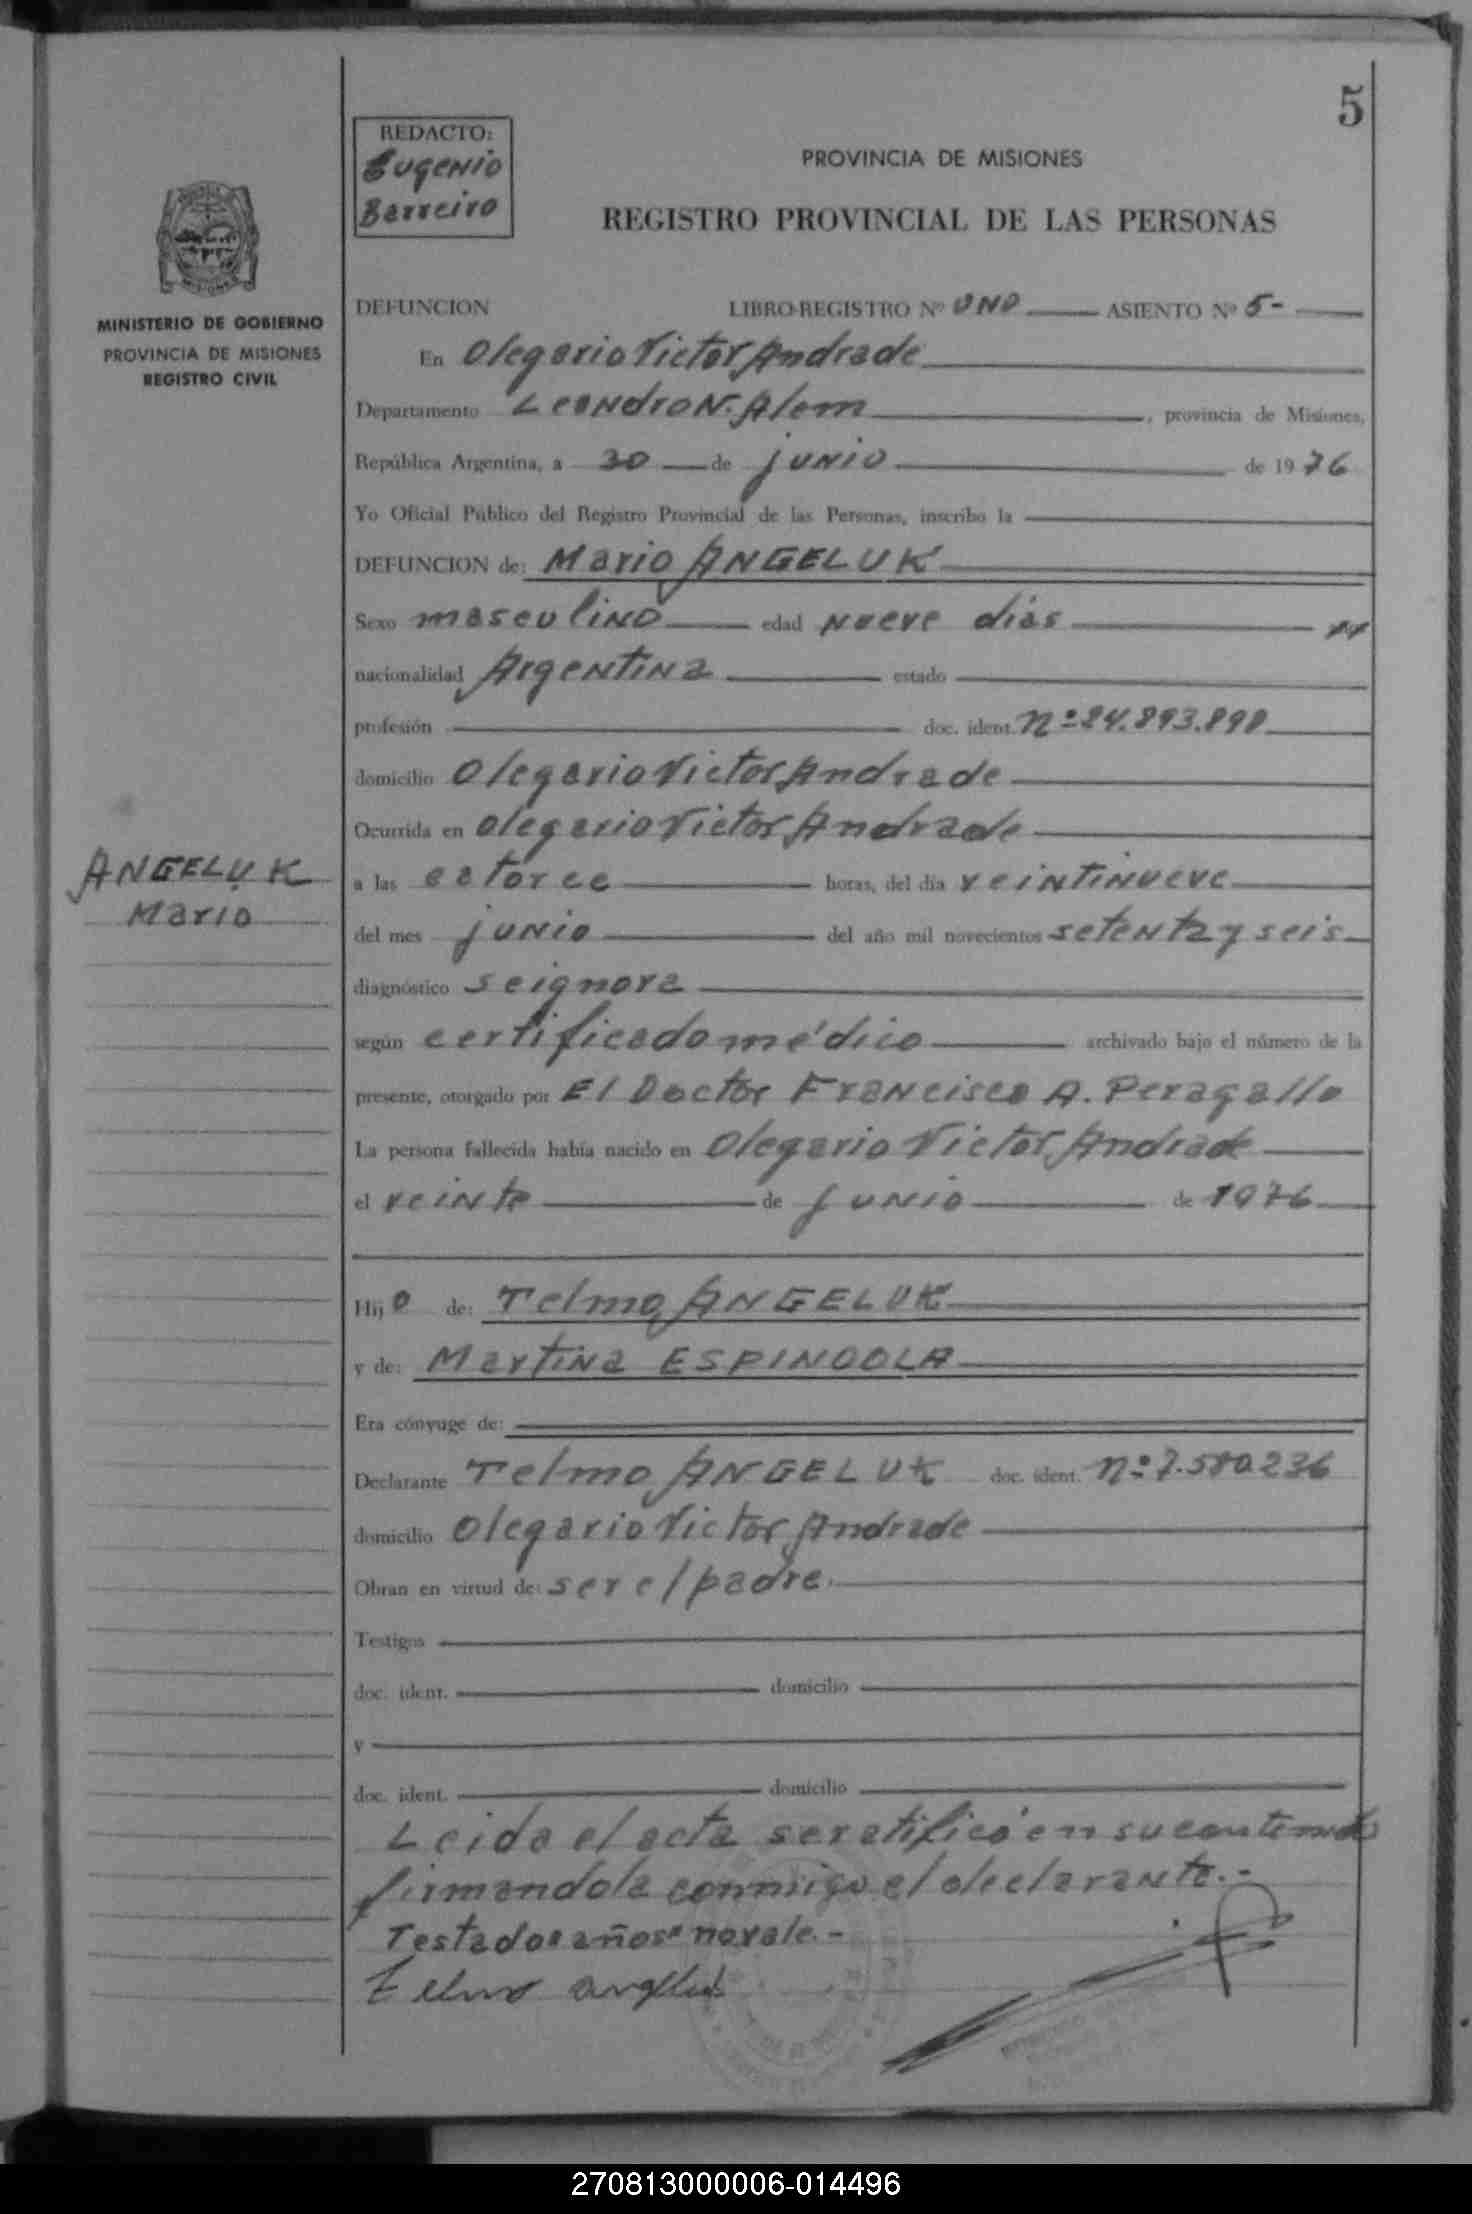 5
REDACTO:
Eugenio
Barreiro
PROVINCIA DE MISIONES
REGISTRO PROVINCIAL DE LAS PERSONAS
MINISTERIO DE GOBIERNO
PROVINCIA DE MISIONES
REGISTRO CIVIL
DEFUNCION LIBRO-REGISTRO Nº UNO ASIENTO Nº 5-
En Olegario Victor Andrade
Departamento Leandro N. Alem, provincia de Misiones,
República Argentina, a 30 de junio de 1976
Yo Oficial Público del Registro Provincial de las Personas, inscribo la
DEFUNCION de: Mario ANGELUK
Sexo masculino edad nueve dias
nacionalidad Argentina estado
profesión doc. ident. Nº 24.893.898
domicilio Olegario Victor Andrade
Ocurrida en Olegario Victor Andrade
ANGELUK
Mario
a las catorce horas, del día veintinueve
del mes junio del año mil novecientos setenta y seis
diagnóstico seignora
según certificado médico archivado bajo el número de la
presente, otorgado por El Doctor Francisco A. Peragallo
La persona fallecida había nacido en Olegario Victor Andrade
el veinte de junio de 1976
Hijo de: Telmo ANGELUK
y de: Martina ESPINDOLA
Era cónyuge de:
Declarante Telmo ANGELUK doc. ident. Nº 7.580.236
domicilio Olegario Victor Andrade
Obran en virtud de: ser el padre.
Testigos
doc. ident. domicilio
y
doc. ident. domicilio
Leida el acta se ratificó en su contenido
firmandola conmigo el declarante.-
Testado "años" no vale.-
Telmo angeluk
270813000006-014496